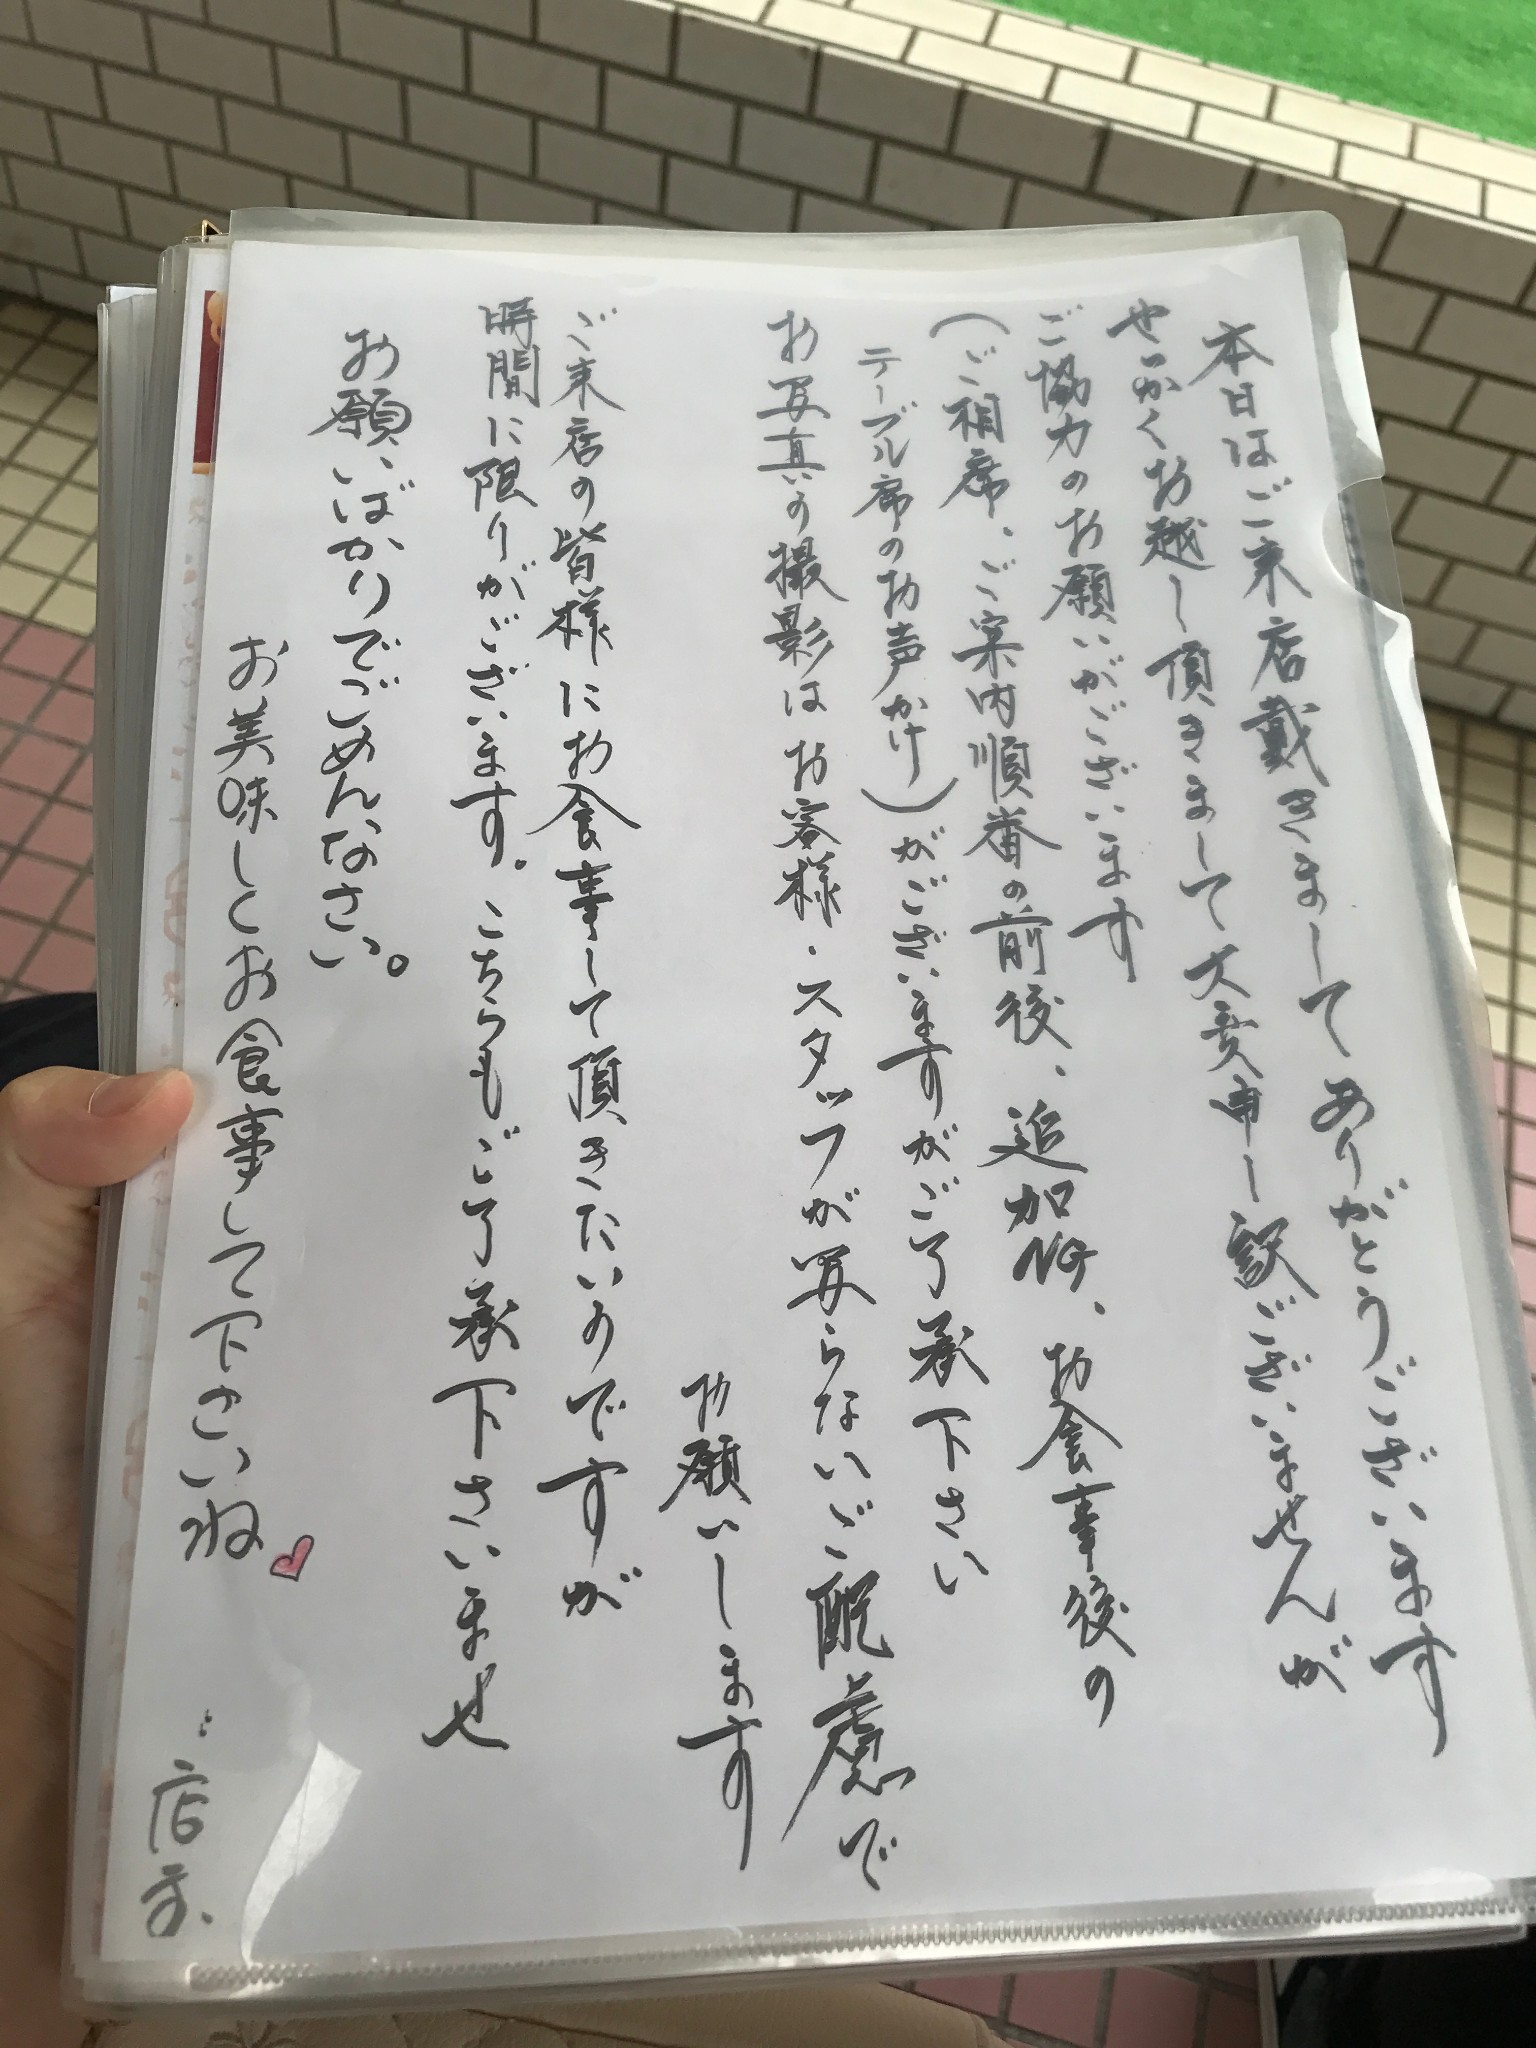 本日はご来店戴きまして ありがとうございます
せっかくお越し頂きまして 大変申し訳ございませんが
ご協力のお願いがございます
（ご相席、ご案内順番の前後、追加NG、お食事後の
テーブル席のお声かけ）がございますがご了承下さい
お写真の撮影は お客様・スタッフが写らないご配慮で
お願いします
ご来店の皆様にお食事して頂きたいのですが
時間に限りがございます。こちらもご了承下さいませ
お願いばかりでごめんなさい。
お美味しくお食事して下さいね
店主